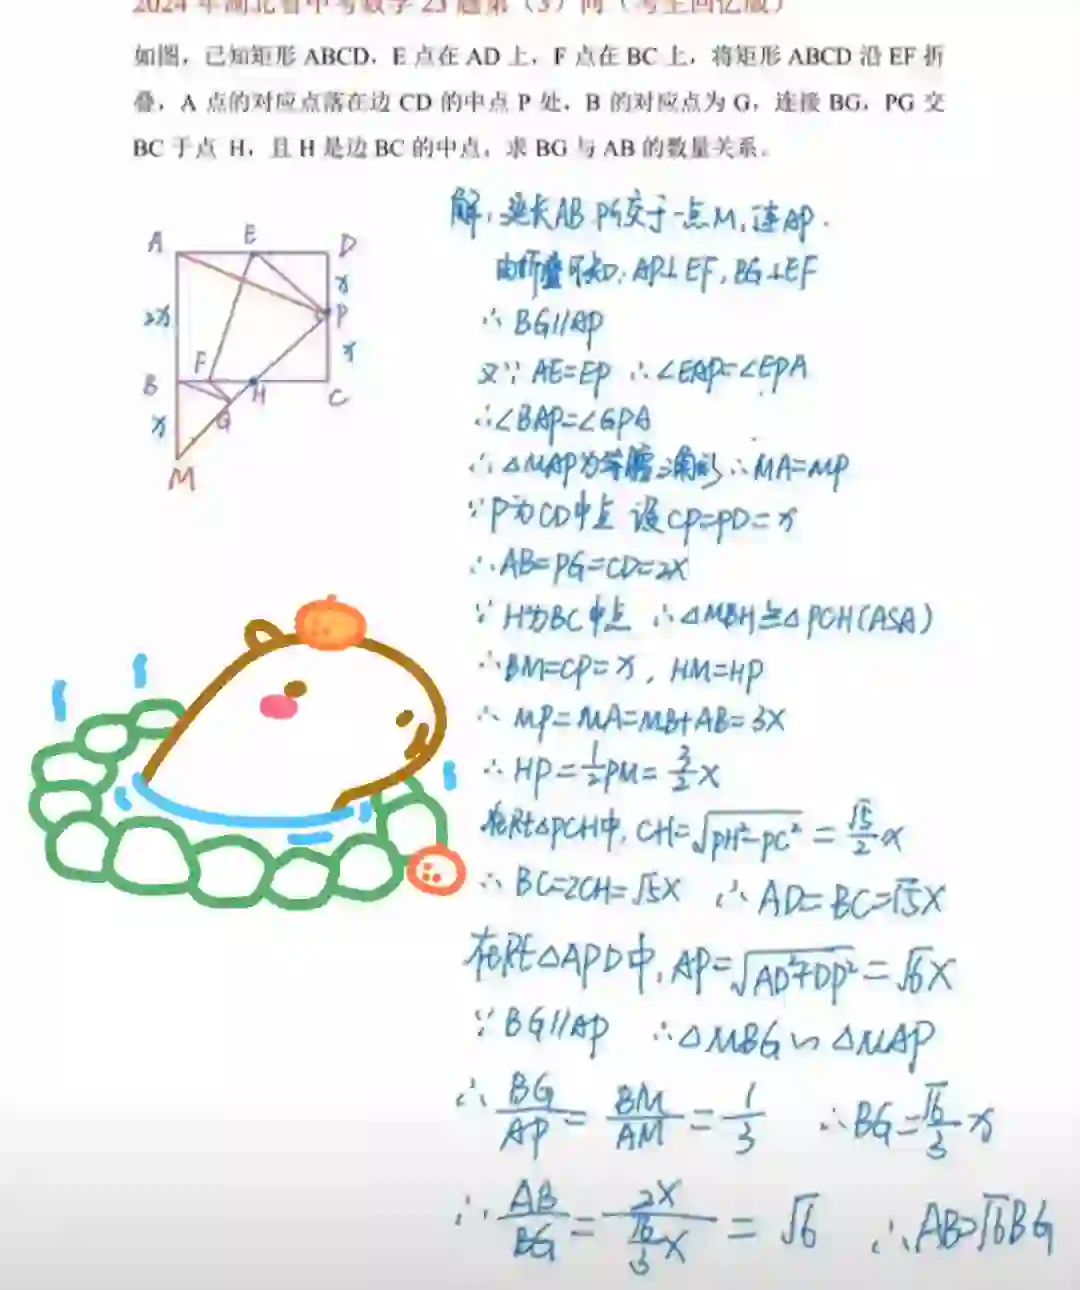 2024年湖北省中考数学23题第（3）问（考生回忆版）
如图，已知矩形 ABCD，E 点在 AD 上，F 点在 BC 上，将矩形 ABCD 沿 EF 折
叠，A 点的对应点落在边 CD 的中点 P 处，B 的对应点为 G，连接 BG，PG 交
BC 于点 H，且 H 是边 BC 的中点，求 BG 与 AB 的数量关系。
解：延长AB、PG交于一点M，连AP.
由折叠可知：AP⊥EF，BG⊥EF
∴BG//AP
又∵AE=EP ∴∠EAP=∠EPA
∴∠BAP=∠GPA
∴△MAP为等腰三角形∴MA=MP
∵P为CD中点 设CP=PD=x
∴AB=PG=CD=2x
∵H为BC中点 ∴△MBH≌△PCH(ASA)
∴BM=CP=x，HM=HP
∴MP=MA=MB+AB=3x
∴HP=1/2PM=3/2x
在Rt△PCH中，CH=√(PH²-PC²)=√5/2x
∴BC=2CH=√5x ∴AD=BC=√5x
在Rt△APD中，AP=√(AD²+DP²)=√6x
∵BG//AP ∴△MBG∽△MAP
∴BG/AP=BM/AM=1/3 ∴BG=√6/3x
∴AB/BG=2x/(√6/3x)=√6 ∴AB=√6BG
A E D
x
2x P
F x
B H C
x G
M